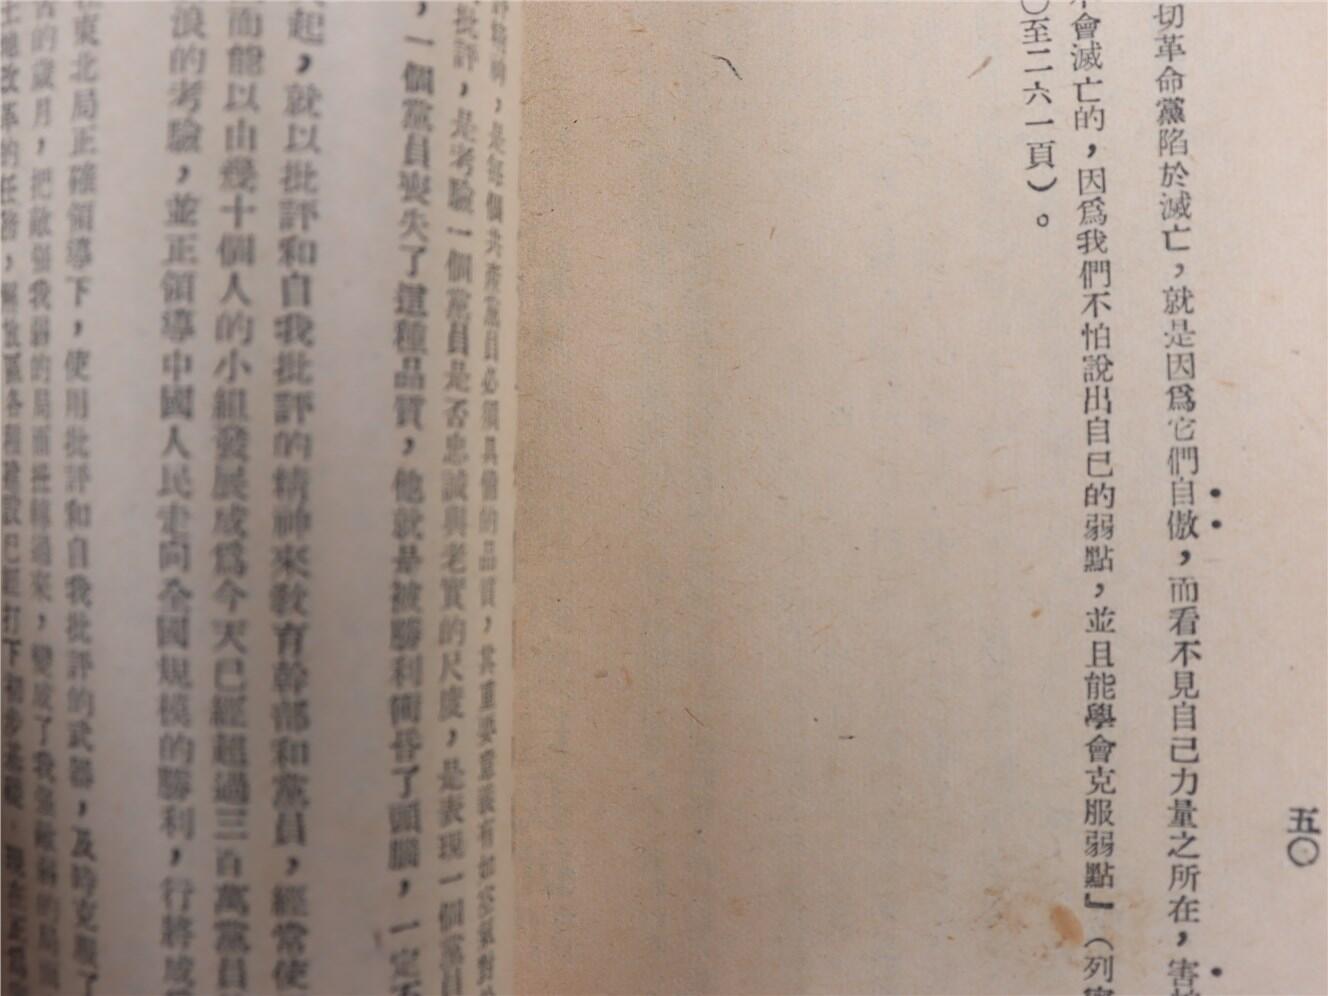 五〇
切革命黨陷於滅亡，就是因爲它們自傲，而看不見自己力量之所在，害
會滅亡的，因爲我們不怕說出自己的弱點，並且能學會克服弱點』（列
〇至二六一頁）。
是每個共產黨員必須具備的品質，其重要意義有如空氣對
批評，是考驗一個黨員是否忠誠與老實的尺度，是表現一個黨員
，一個黨員喪失了這種品質，他就是被勝利衝昏了頭腦，一定
起，就以批評和自我批評的精神來教育幹部和黨員，經常使
而能以由幾十個人的小組發展成爲今天已經超過三百萬黨員
浪的考驗，並正領導中國人民走向全國規模的勝利，行將成
東北局正確領導下，使用批評和自我批評的武器，及時克服了
的歲月，把敵強我弱的局面扭轉過來，變成了我強敵弱的局面